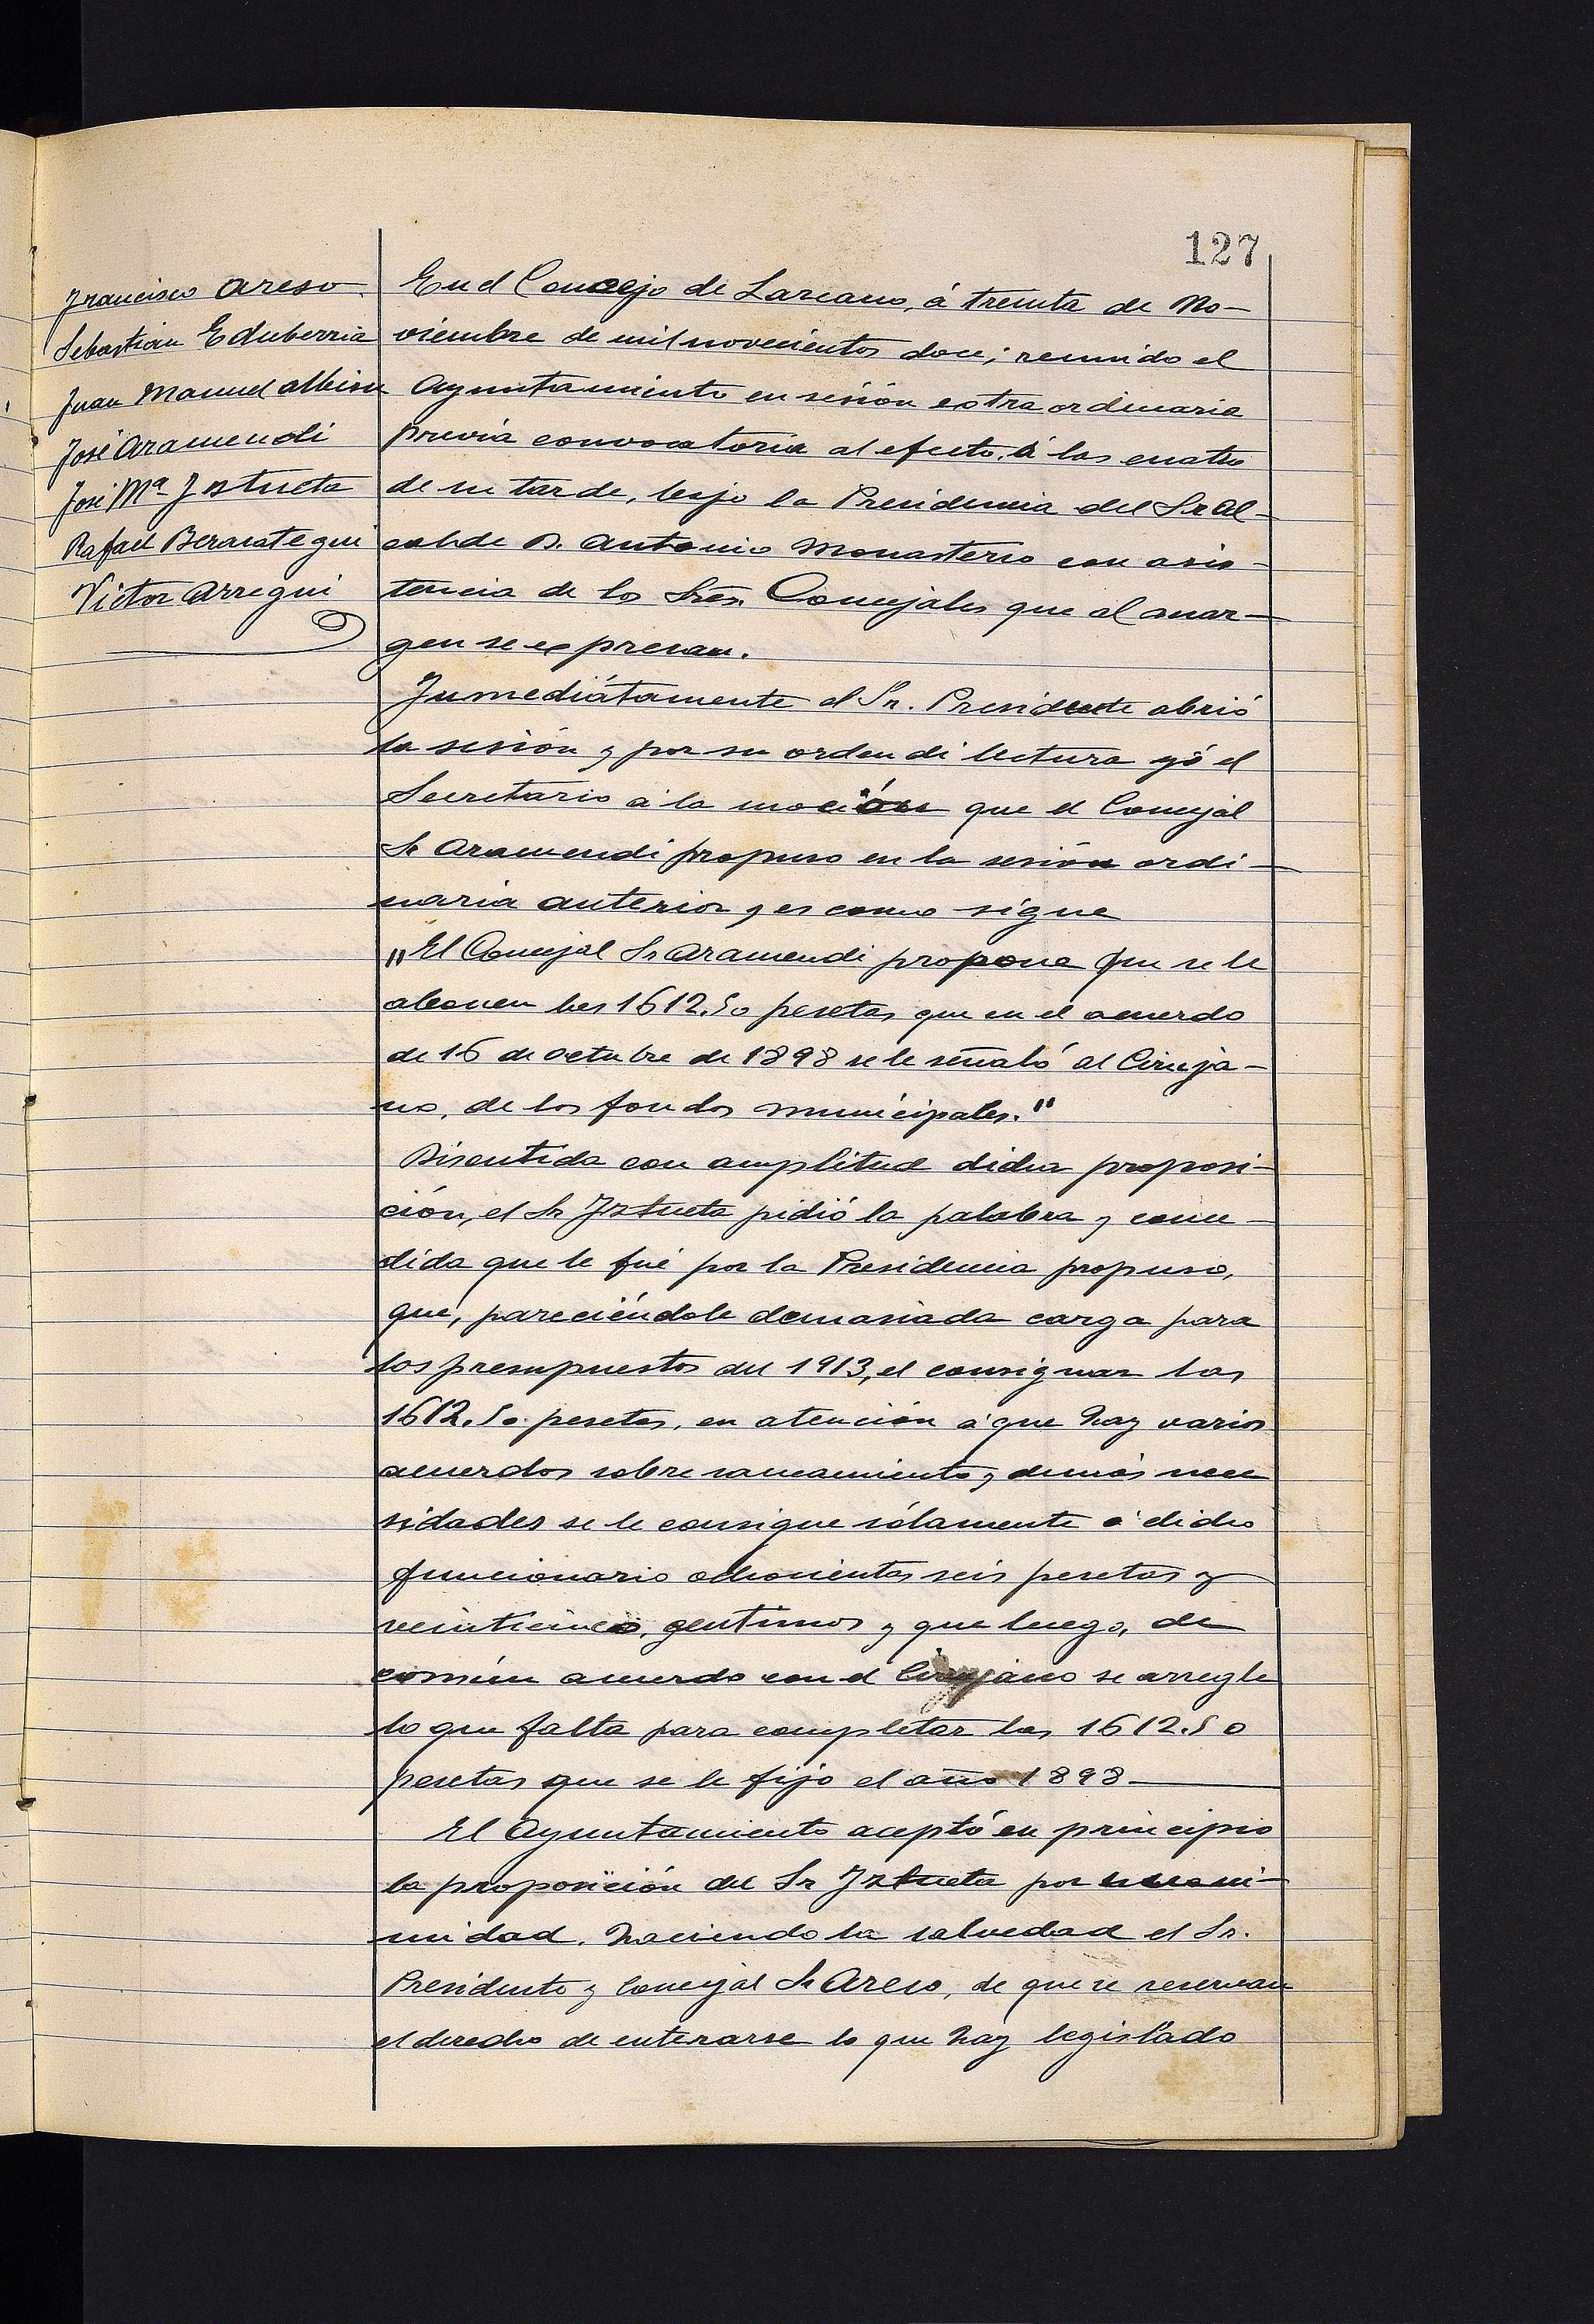 127
Francisco Areso
Sebastián Echeberria
Juan Manuel Albisu
José Aramendi
José Mª Iztueta
Rafael Berasategui
Victor Arregui
En el Concejo de Lazcano, á treinta de No-
viembre de mil novecientos doce; reunido el
Ayuntamiento en sesión extraordinaria
previa convocatoria al efecto, á las cuatro
de su tarde, bajo la Presidencia del Sr Al-
calde D. Antonio Monasterio con asis-
tencia de los Sres. Concejales que al mar-
gen se expresan.
Inmediátamente el Sr. Presidente abrió
la sesión y por su orden di lectura yó el
Secretario á la moción que el Concejal
Sr Aramendi propuso en la sesión ordi-
naria anterior y es como sigue
"El Concejal Sr Aramendi propone que se le
abonen las 1612.50 pesetas que en el acuerdo
de 16 de octubre de 1898 se le señaló al Ciruja-
no, de los fondos municipales."
Discutida con amplitud dicha proposi-
ción, el Sr Iztueta pidió la palabra y conce-
dida que le fué por la Presidencia propuso,
que, pareciéndole demasiada carga para
los presupuestos del 1913, el consignar las
1612.50 pesetas, en atención á que hay varios
acuerdos sobre saneamiento y demás nece
sidades se le consigne sólamente á dicho
funcionario ochocientas seis pesetas y
veinticinco, centimos y que luego, de
común acuerdo con el Cirujano se arregle
lo que falta para completar las 1612.50
pesetas que se le fijo el año 1898
El Ayuntamiento aceptó en principio
la proposición del Sr Iztueta por unani-
midad. haciendo la salvedad el Sr.
Presidente y Concejal Sr Areso, de que se reservan
el derecho de enterarse lo que hay legislado